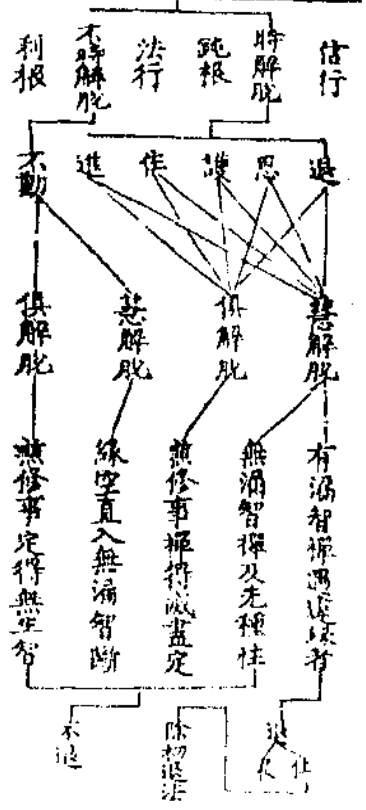 信行
時解脫
鈍根
法行
不時解脫
利根
退
思
護
住
進
不動
慧解脫
俱解脫
慧解脫
俱解脫
有漏智禪遇違緣者
無漏智禪及先種性
兼修事禪得滅盡定
緣空直入無漏智斷
兼修事定得無生智
退
住
除初退法
不退